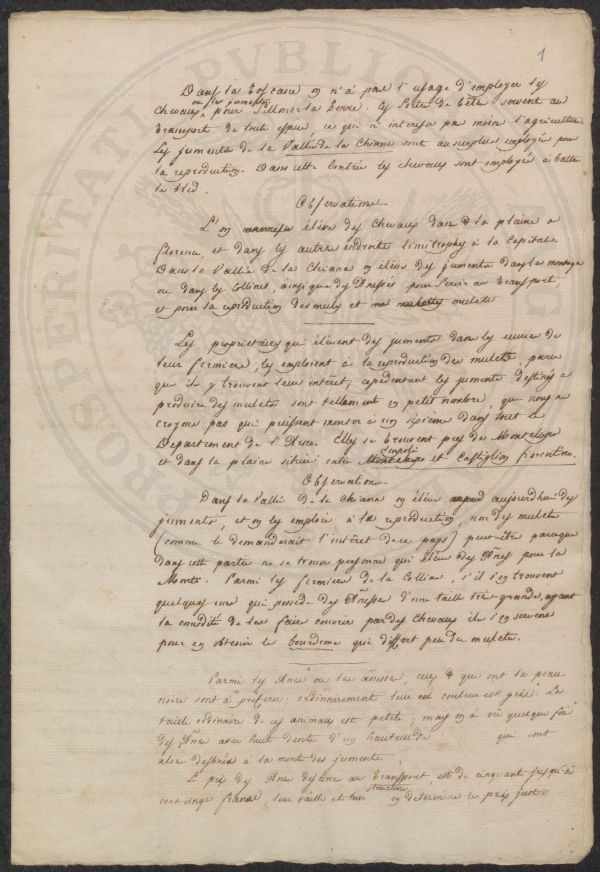 1
Dans la Toscane on n'a pas l'usage d'employer les
ou les juments
chevaux pour silloner la terre. Ces sortes de bête servent au
transport de toute espece, ce qui n'interesse pas moins l'agriculture
Les juments de la Vallée de la Chiana sont au surplus employées pour
la reproduction. Dans cette contrée les chevaux sont employés à battre
le bled.
Observations
L'on élève des chevaux dans la plaine de
florence, et dans les autres endroits limitrophes à la Capitale
Dans la Vallée de la Chiana on élève des juments dans la montagne
ou dans les Collines, ainsi que des Anesses pour servir au transport,
et pour la reproduction des mules et mulets
Les propriétaires qui élèvent des juments dans les écuries de
leur fermiers, les emploient à la reproduction des mulets, parce
que ils y trouvent leur intérêt, cependant les juments destinées à
produire des mulets sont tellement en petit nombre, que nous ne
croyons pas qui puissent monter à un sixième dans tout le
Departement de l'Arno. Elles se trouvent près de Montelupo
Empoli
et dans la plaine située entre Montelupo et Castiglion fiorentino.
Observations
Dans la Vallée de la Chiana on élève aujourd'hui des
juments, et on les emploie à la reproduction non des mulets
(comme le demanderait l'intérêt de ce pays) peut-être parceque
dans cette partie ne se trouve personne qui élève des Anes pour la
Monte. Parmi les fermiers de la Colline, s'il s'en trouvent
quelques uns qui possede des Anesses d'une taille très grande, ayant
la comodité de les faire couvrir par des chevaux ils s'en servent
pour en obtenir le bourdone qui differt peu du mulets.
Parmi les Anes ou les anesses, ceux que ont la peau
noire sont à préferer; ordinairement leur couleur est grise. La
taille ordinaire de ces animaux est petite; mais on a vû quelque fois
des Anes avec huit d'en hauteur qui sont
alors destinés à la monte des juments.
Le prix des Anes destinés au transport, est de cinquante jusqu'à
structure
cent vingt francs, leur taille et leur en determine le prix juste.